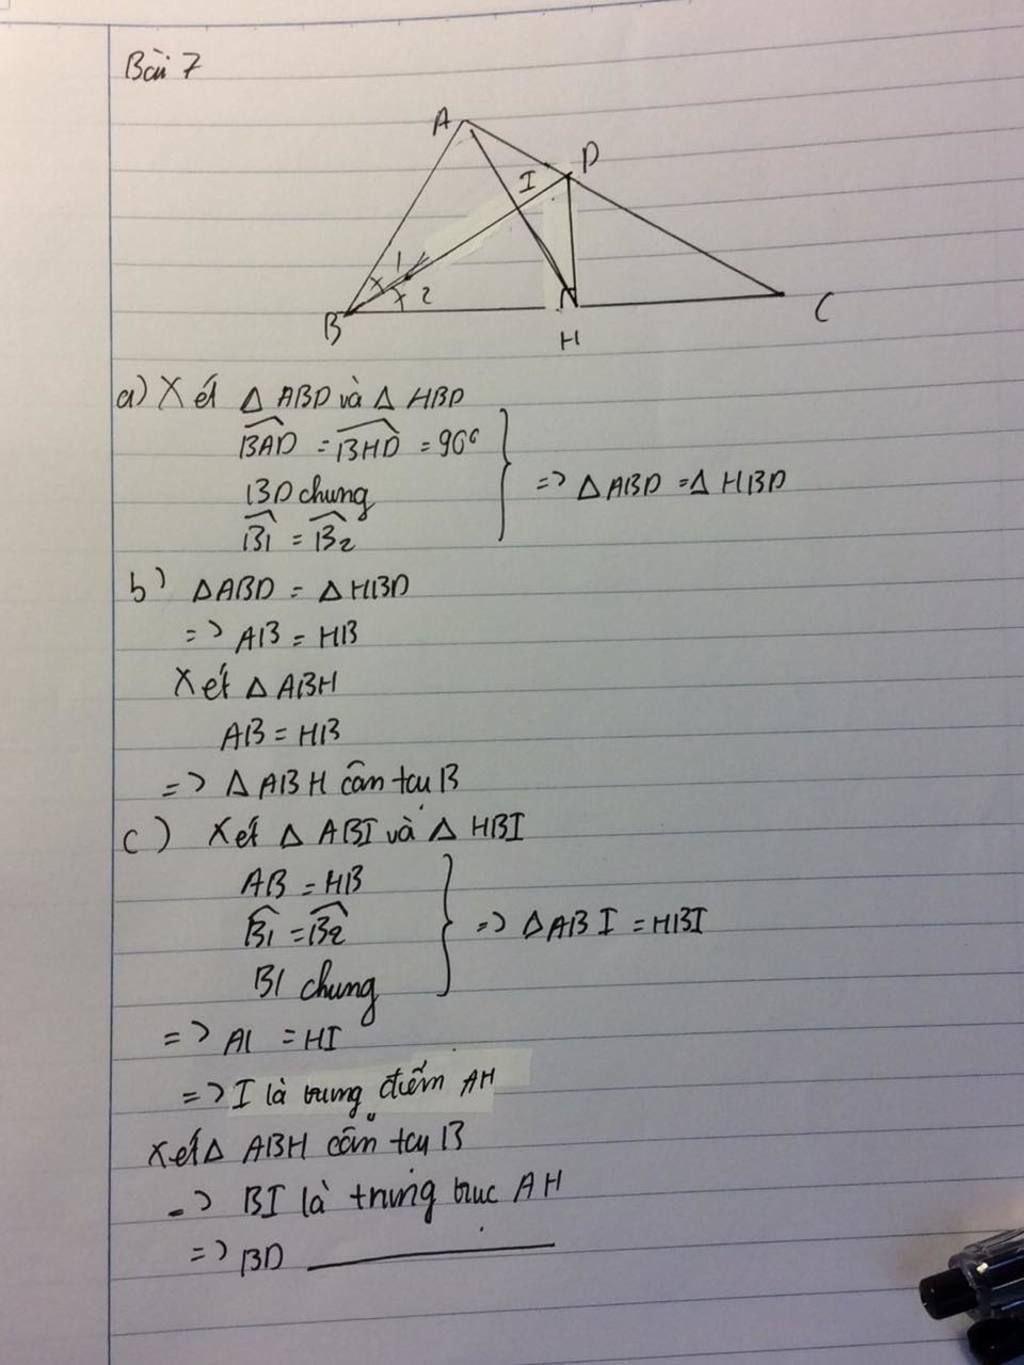 Bài 7
A
D
I
1
2
B
H
C
a) Xét Δ ABD và Δ HBD
BAD = BHD = 90°
BD chung
B1 = B2
=> Δ ABD = Δ HBD
b) ΔABD = ΔHBD
=> AB = HB
Xét Δ ABH
AB = HB
=> Δ ABH cân tại B
c) Xét Δ ABI và Δ HBI
AB = HB
B1 = B2
BI chung
=> ΔABI = HBI
=> AI = HI
=> I là trung điểm AH
Xét Δ ABH cân tại B
=> BI là trung trực AH
=> BD